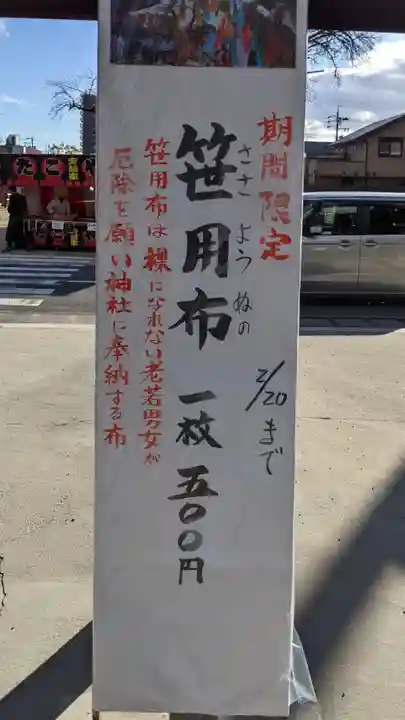 期間限定
2/20まで
笹用布 一枚 五〇〇円
ささ よう ぬの
笹用布は裸になれない老若男女が
厄除を願い神社に奉納する布
たこ